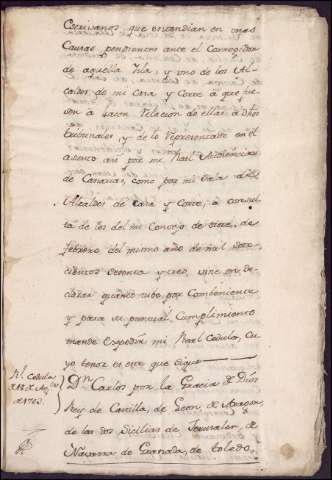 Escrivanos que entendian en unas
Causas pendientes ante el Corregidor
de aquella Isla, y uno de los Al-
caldes de mi Casa y Corte à que fue-
sen à hacer relacion de ellas à dhos
tribunales, y de lo representado en el
asunto asi por mi Real Audiencia
de Canarias, como por mi Sala de
Alcaldes de Casa y Corte, à consul-
ta de los del mi Consejo de siete de
febrero del mismo año de mil sete-
cientos setenta y tres, vine en de-
clarar quanto tubo por combeniente
y para su puntual Cumplimiento
mande expedir mi Real Cedula, cu-
yo tenor es este que sigue
Rl. Cedula
de
de 1763.
Dn. Carlos por la Gracia de Dios
Rey de Castilla, de Leon, de Aragon
de las dos Sicilias de Jerusalen, de
Navarra de Granada, de toledo,